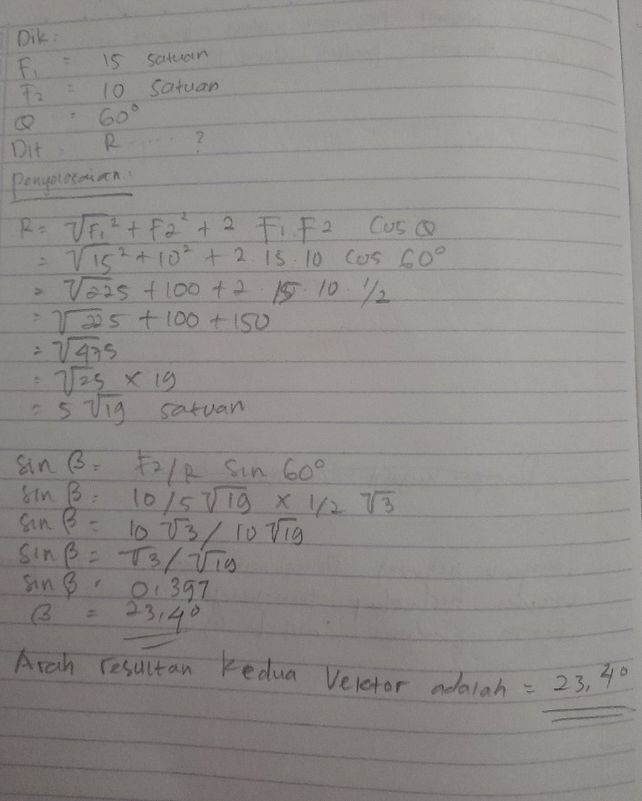 Dik :
F₁ = 15 satuan
F₂ = 10 Satuan
Q = 60°
Dit R ..... ?
Penyelesaian :
R = √F₁² + F2² + 2 F₁.F2 Cos Q
= √15² + 10² + 2. 15. 10 Cos 60°
= √225 + 100 + 2 . 15. 10. 1/2
= √225 + 100 + 150
= √475
= √25 x 19
= 5 √19 satuan
Sin β = F2/R Sin 60°
Sin β = 10/5 √19 x 1/2 √3
Sin β = 10 √3 / 10 √19
Sin β = √3 / √19
Sin β = 0,397
β = 23,4°
Arah resultan kedua Vektor adalah = 23,4°